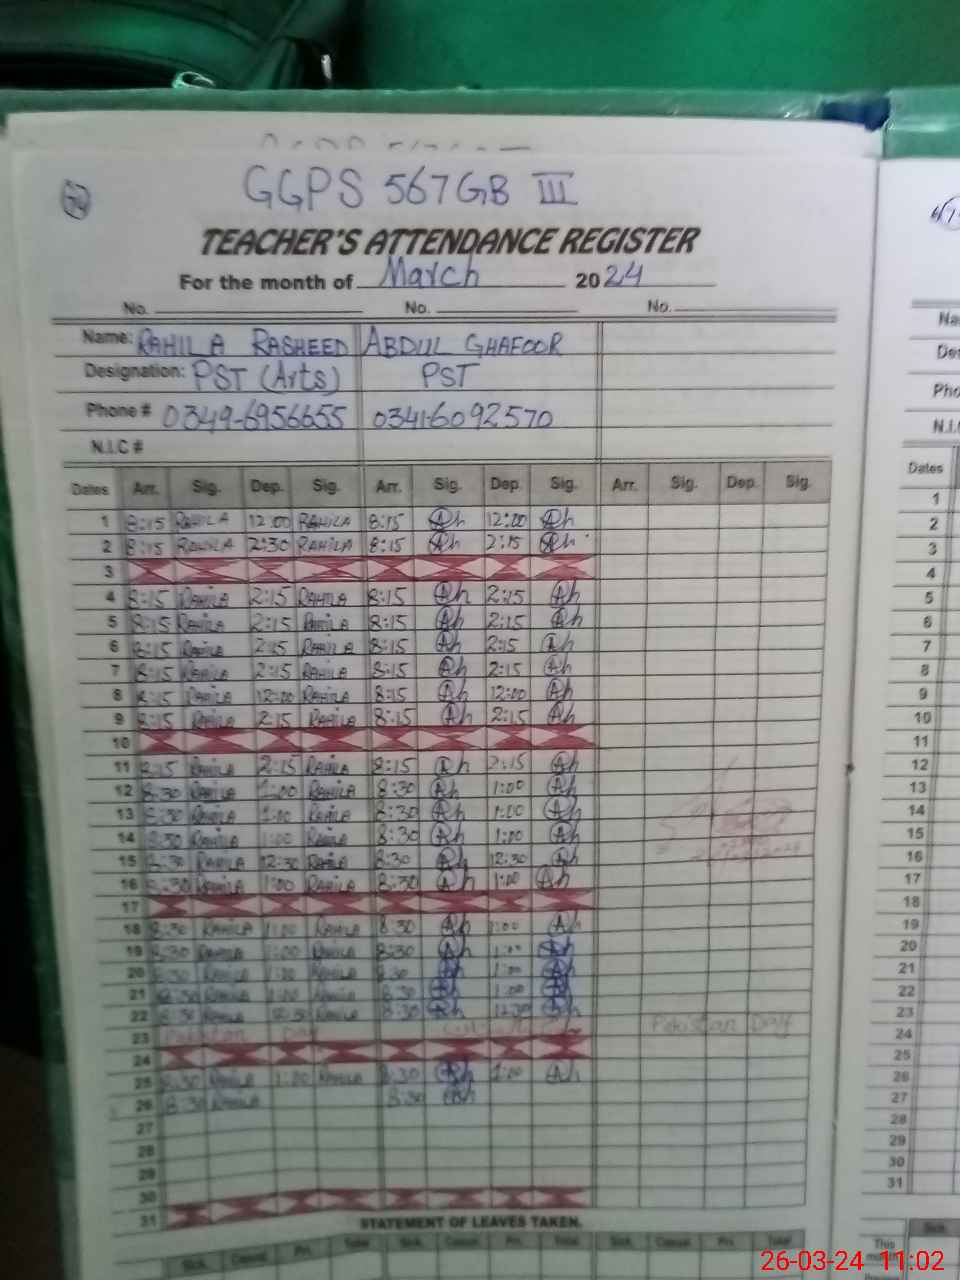 GGPS 567GB III
TEACHER'S ATTENDANCE REGISTER
For the month of March 2024
No. No. No.
Name: RAHILA RASHEED ABDUL GHAFOOR
Designation: PST (Arts) PST
Phone # 0349-6956655 0341-6092570
N.I.C #
Dates Arr. Sig. Dep. Sig. Arr. Sig. Dep. Sig. Arr. Sig. Dep. Sig.
1 8:15 RAHILA 12:00 RAHILA 8:15 Ah 12:00 Ah
2 8:15 RAHILA 2:30 RAHILA 8:15 Ah 2:15 Ah
3
4 8:15 RAHILA 2:15 RAHILA 8:15 Ah 2:15 Ah
5 8:15 RAHILA 2:15 RAHILA 8:15 Ah 2:15 Ah
6 8:15 RAHILA 2:15 RAHILA 8:15 Ah 2:15 Ah
7 8:15 RAHILA 2:15 RAHILA 8:15 Ah 2:15 Ah
8 8:15 RAHILA 12:00 RAHILA 8:15 Ah 12:00 Ah
9 8:15 RAHILA 2:15 RAHILA 8:15 Ah 2:15 Ah
10
11 8:15 RAHILA 2:15 RAHILA 8:15 Ah 2:15 Ah
12 8:30 RAHILA 1:00 RAHILA 8:30 Ah 1:00 Ah
13 8:30 RAHILA 1:00 RAHILA 8:30 Ah 1:00 Ah
14 8:30 RAHILA 1:00 RAHILA 8:30 Ah 1:00 Ah
15 8:30 RAHILA 12:30 RAHILA 8:30 Ah 12:30 Ah
16 8:30 RAHILA 1:00 RAHILA 8:30 Ah 1:00 Ah
17
18 8:30 RAHILA 1:00 RAHILA 8:30 Ah 1:00 Ah
19 8:30 RAHILA 1:00 RAHILA 8:30 Ah 1:00 Ah
20 8:30 RAHILA 1:00 RAHILA 8:30 Ah 1:00 Ah
21 8:30 RAHILA 1:00 RAHILA 8:30 Ah 1:00 Ah
22 8:30 RAHILA 12:30 RAHILA 8:30 Ah 12:30 Ah
23 Pakistan Day Pakistan Day
24
25 8:30 RAHILA 1:00 RAHILA 8:30 Ah 1:00 Ah
26 8:30 RAHILA 8:30 Ah
27
28
29
30
31
STATEMENT OF LEAVES TAKEN.
Sick. Casual. Pri. Total. Sick. Casual. Pri. Total. Sick. Casual. Pri. Total.
Dates
1
2
3
4
5
6
7
8
9
10
11
12
13
14
15
16
17
18
19
20
21
22
23
24
25
26
27
28
29
30
31
This month
Sick.
26-03-24 11:02